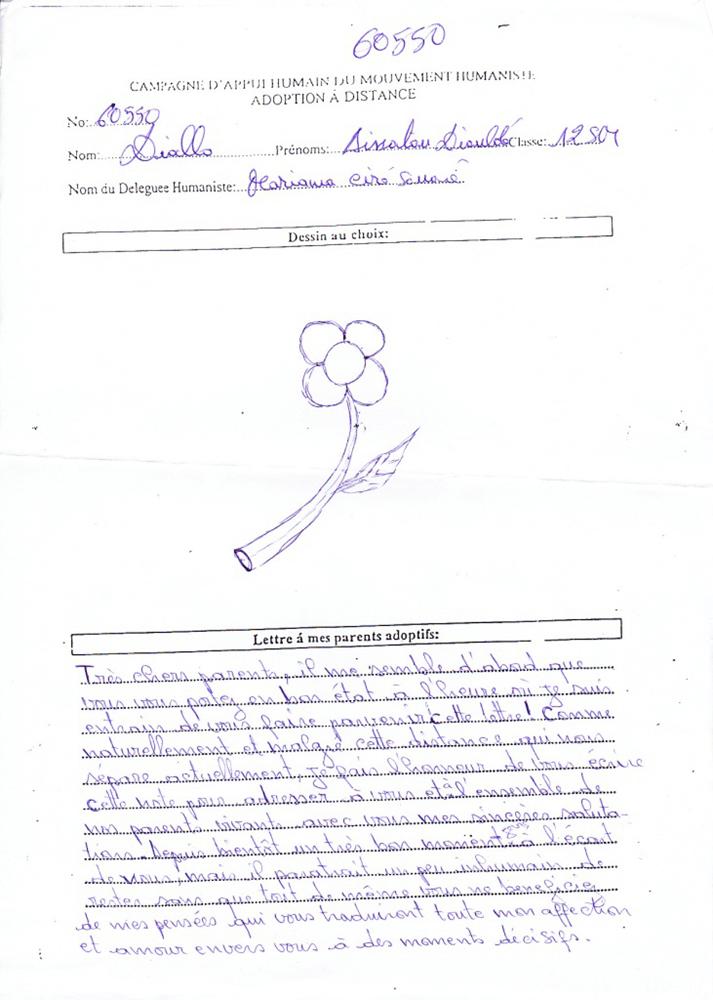 60550
CAMPAGNE D'APPUI HUMAIN DU MOUVEMENT HUMANISTE
ADOPTION À DISTANCE
No: 60550
Nom: Diallo Prénoms: Aissatou Dioulde Classe: 12 S01
Nom du Deleguee Humaniste: Mariama ciré
Dessin au choix:
Lettre á mes parents adoptifs:
Très chers parents, il me semble d'abord que
vous vous portez en bon état à l'heure où je suis
entrain de vous faire parvenir cette lettre! Comme
naturellement et malgré cette distance qui nous
sépare actuellement, je fais l'honneur de vous écrire
cette note pour adresser à vous et à l'ensemble de
nos parents vivants avec vous mes sincères saluta-
tions. Depuis bientôt un très bon moment à l'écart
de vous, mais il paraitrait un peu inhumain de
rester sans que toit de même vous ne beneficiez
de mes pensées qui vous traduiront toute mon affection
et amour envers vous à des moments décisifs.